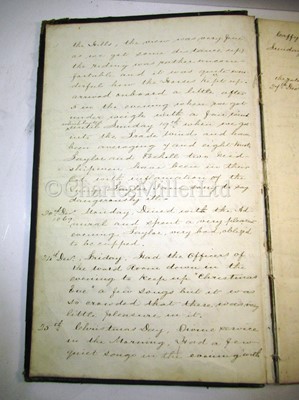 the Hills, the view was very fine
as we got some distance up
the riding was rather uncom-
fortable and it was quite won-
derful how the horses kept up
around a little after
5 in the evening when we got
under weigh with a fair wind
until Sunday 19th when we got
into the Trade Winds and have
been averaging 7 and eight knots
Taylor and
shipmen have been in their
with inflammation of the
dangerously ill.
20th Dec. Monday. Dined with the Ad-
miral and spent a very pleasant
evening Taylor very bad obliged
to be cupped.
24th Dec. Friday. Had the Officers of
the Ward Room down in the
evening to keep up "Christmas
Eve" a few songs but it was
so crowded that there was very
little pleasure in it.
25th Christmas Day. Divine service
in the Morning. Had a few
quiet songs in the evening with
© CharlesMillerLtd
Sunday
27th Dec